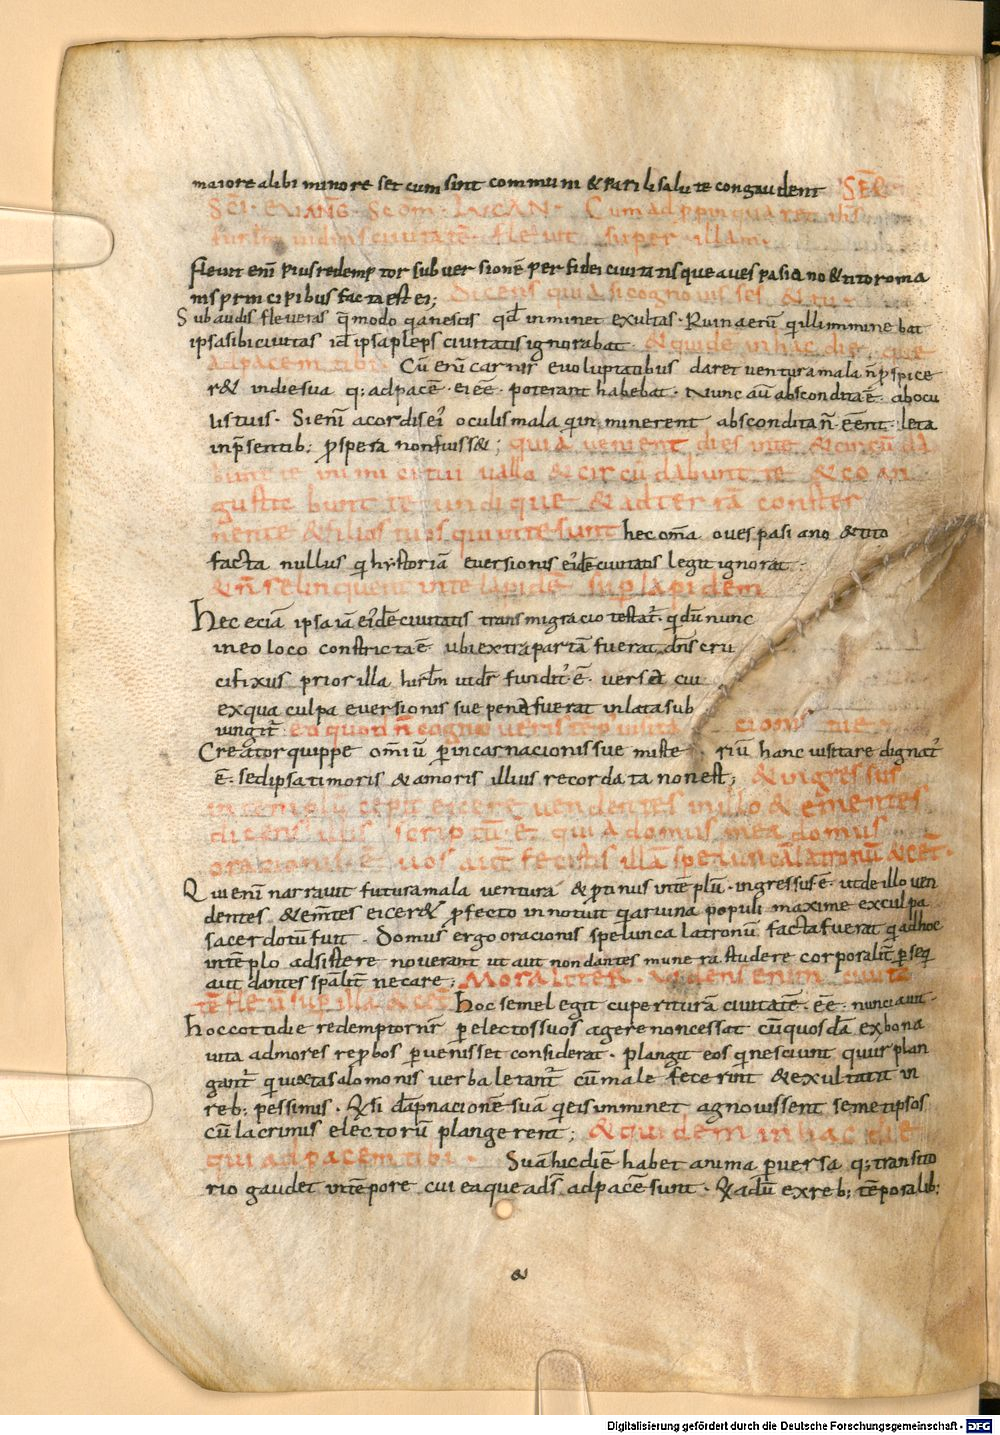 maiore alibi minore set cum sint communi & parili salute congaudent SEQ
SCI · EUANG · Scdm · LUCAN · Cum adp̄pinquaret ih̄s
hirl̄m uidens ciuitatē · fleuit super illam
fleuit eni᷒ pius redemptor subuersionē perfidę ciuitatis que a uespasiano & tito roma
nis principibus facta est ei; Dicens quia si cognouisses & tu ·
Subaudis fleueras q̄ modo qa nescis qd̄ inminet exultas · Ruina etū q illi imminebat
ipsa sibi ciuitas id ē ipsa plebs ciuitatis ignorabat · & quidē in hac die tue
ad pacem tibi · Cū enī carnis se uoluptatibus daret uentura mala n̄ p̄spice
r& in die sua q; ad pacē ei eē poterant habebat · Nunc aū abscondita ē ab ocu
lis tuis · Si enī a cordis ei᷒ oculis mala q inminerent abscondita n̄ eēnt · leta
in p̄sentib; p̄spera non fuiss&; quia uenient dies in te & circūda
bunt te inimici tui uallo & circūdabunt te & coan
gustabunt te undique & ad terrā conster
nent te & filios tuos qui in te sunt hec om̄a a uespasiano & tito
facta nullus q hystoriā euersionis ei᷒dē ciuitatis legit ignorat ·
& n̄ relinquent in te lapidē sup lapidem
Hec eciā ipsa iā ei᷒dē ciuitatis transmigracio testat᷒ · q dū nunc
in eo loco constricta ē ubi extra portā fuerat dn̄s cru
cifixus prior illa hirl̄m ut dr̄ fundit᷒ ē · uersa cui
ex qua culpa euersionis sue pena fuerat inlata sub
iungit᷒ eo quod n̄ cognoueris tēp᷒ uisita cionis tue ·
Creator quippe om̄iū p incarnacionis sue miste riū hanc uisitare dignat᷒
ē · sed ipsa timoris & amoris illius recordata non est; & ingressus
in templū cepit eicere uendentes in illo & ementes
dicens illis scriptū ēt quia domus mea domus
oracionis · ēt uos aut̄ fecistis illā speluncā latronū & cet̄ ·
Qui enī narrauit futura mala uentura & ptinus in tēplū · ingressus ē · ut de illo uen
dentes & em̄tes eicer& pfecto innotuit q a ruina populi maxime ex culpa
sacerdotū fuit · Domus ergo oracionis spelunca latronū facta fuerat q ad hoc
in tēplo adsistere nouerant ut aut non dantes munera studere corporalit̄ pseq
aut dantes sp̄alit̄ necare; Moraliter · Uidens enim ciuita
tē fleuit sup illā & cet̄ Hoc semel egit cū peritura ciuitatē · eē · nunciauit ·
hoc cottidie redemptor nr̄ p electos suos agere non cessat cū quosdā ex bona
uita ad mores rep̄bos puenisse considerat · plangit eos q nesciunt quur plan
gant᷒ q iuxta salomonis uerba letant᷒ cū male fecerint & exultant in
reb; pessimis · Q si dāpnacionē suā q eis imminet agnouissent semetipsos
cū lacrimis electorū plangerent; & quidem in hac die
qui ad pacem tibi · Suā hic diē habet anima puersa q; transito
rio gaudet in tēpore cui ea que ads̄ ad pacē sunt · Q adū ex reb; tēporalib;
&
Digitalisierung gefördert durch die Deutsche Forschungsgemeinschaft - DFG